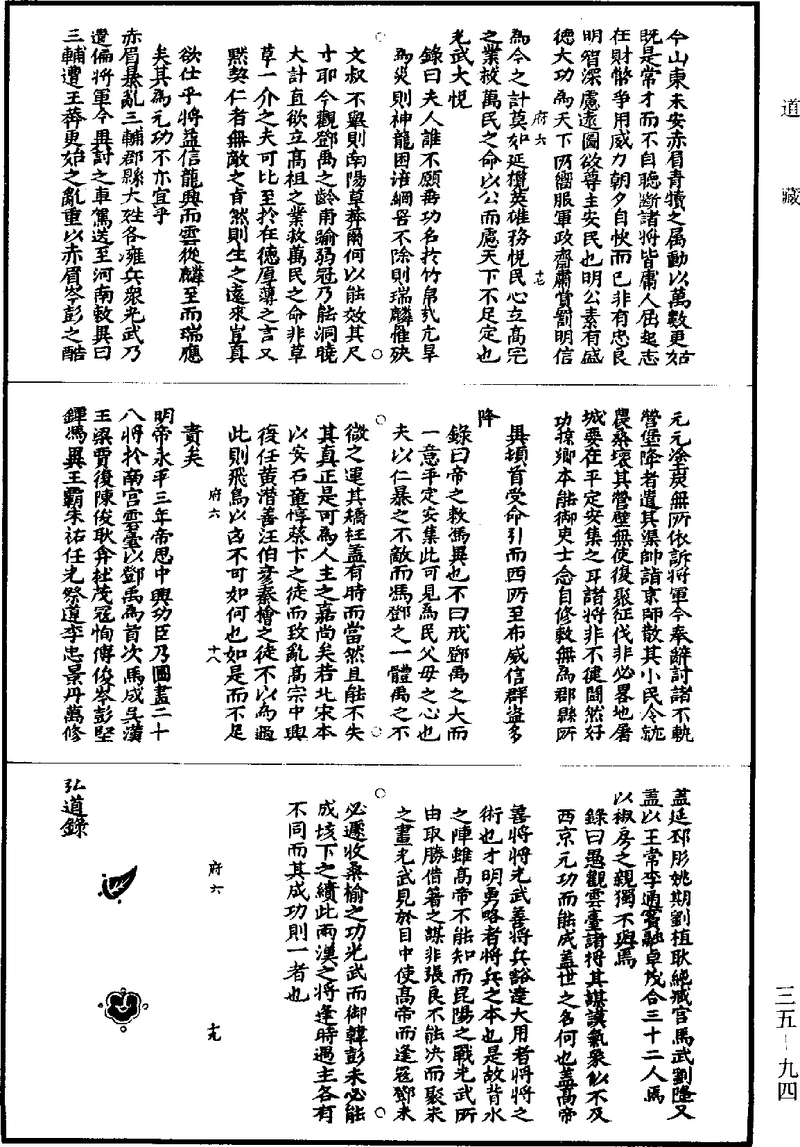 道藏
今山東未安赤眉青犢之屬動以萬數更始
既是常才而不自聽斷諸將皆庸人屈起志
在財幣爭用威力朝夕自快而已非有忠良
明智深慮遠圖欲尊主安民也明公素有盛
德大功為天下所嚮服軍政齊肅賞罰明信
府六
十七
為今之計莫如延攬英雄務悅民心立高宗
之業救萬民之命以公而慮天下不足定也
光武大悅
錄曰夫人誰不願垂功名於竹帛哉亢旱
為災則神龍困諳綱罟不除則瑞麟罹殃
文叔不舉則南陽草莽爾何以能效其尺
寸耶今觀鄧禹之齡甫踰弱冠乃能洞曉
大計直欲立高祖之業救萬民之命非草
草一介之夫可比至於在德厚薄之言又
黙契仁者無敵之旨然則生之遠來豈真
欲仕乎將益信龍興而雲從麟至而瑞應
矣其為元功不亦宜乎
赤眉暴亂三輔郡縣大姓各擁兵衆光武乃
遣偏將軍令異討之車駕送至河南敕異曰
三輔遭王莽更始之亂重以赤眉岑彭之酷
元元塗炭無所依訴將軍今奉辭討諸不軌
營堡降者遣其渠帥詣京師散其小民令就
農桑壞其營壁無使復聚征伐非必畧地屠
城要在平定安集之耳諸將非不健鬪然好
功掠卿本能御吏士念自修敕無為郡縣所
異頓首受命引而西所至布威信群盜多
降
錄曰帝之敕馮異也不曰戒鄧禹之大而
一意平定安集此可見為民父母之心也
夫以仁暴之不敵而馮鄧之一體禹之不
徵之運其矯枉蓋有時而當然且能不失
其真正是可為人主之嘉尚矣若北宋本
以安石童惇蔡卞之徒而致亂高宗中興
復任黄潜善汪伯彥秦檜之徒不以為過
此則飛鳥以凶不可如何也如是而不足
府六
十八
責矣
明帝永平三年帝思中興功臣乃圖畫二十
八將於南宮雲臺以鄧禹為首次馬成吳漢
王梁賈復陳俊耿弇杜茂寇恂傅俊岑彭堅
鐔馮異王霸朱祐任光祭遵李忠景丹萬修
蓋延邳彤姚期劉植耿純臧宮馬武劉隆又
益以王常李通竇融卓茂合三十二人馬
以椒房之親獨不與焉
錄曰愚觀雲臺諸將其謀謨氣象似不及
西京元功而能成蓋世之名何也蓋高帝
善將將光武善將兵豁達大用者將將之
術也才明勇略者將兵之本也是故背水
之陣雖高帝不能知而昆陽之戰光武所
由取勝借箸之謀非張良不能决而聚米
之畫光武見於目中使高帝而逢寇鄧未
必遽收桑榆之功光武而御韓彭未必能
成垓下之績此兩漢之將逢時遇主各有
不同而其成功則一者也
府六
十九
弘道錄
三五－九四